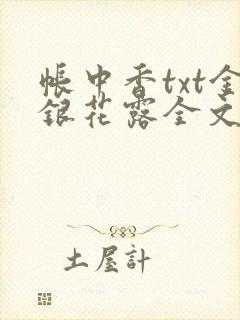 帳中香txt金
銀花露全文
土屋計